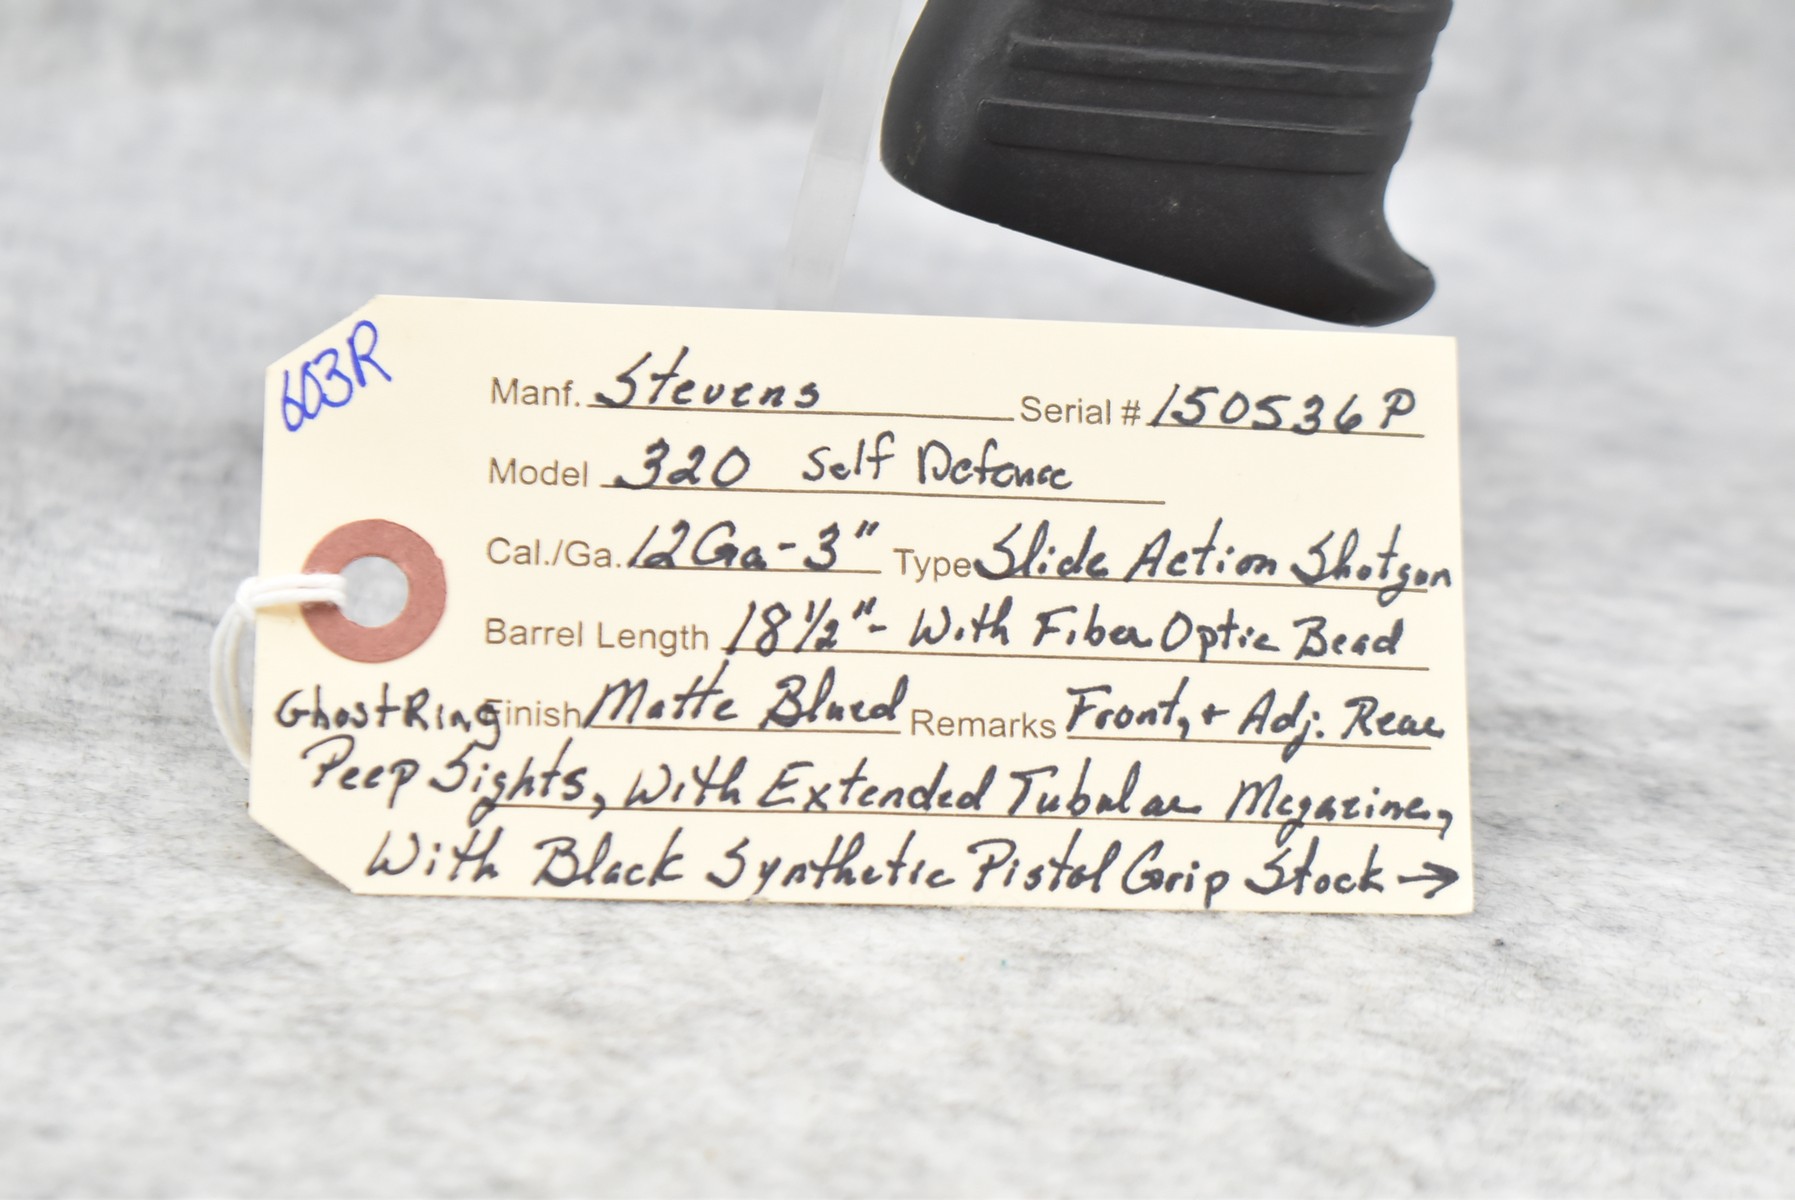 603R
Manf. Stevens Serial # 150536P
Model 320 Self Defense
Cal./Ga. 12Ga-3" Type Slide Action Shotgun
Barrel Length 18 1/2"- With Fiber Optic Bead
GhostRing Finish Matte Blued Remarks Front, + Adj. Rear
Peep Sights, With Extended Tubular Magazine,
With Black Synthetic Pistol Grip Stock →